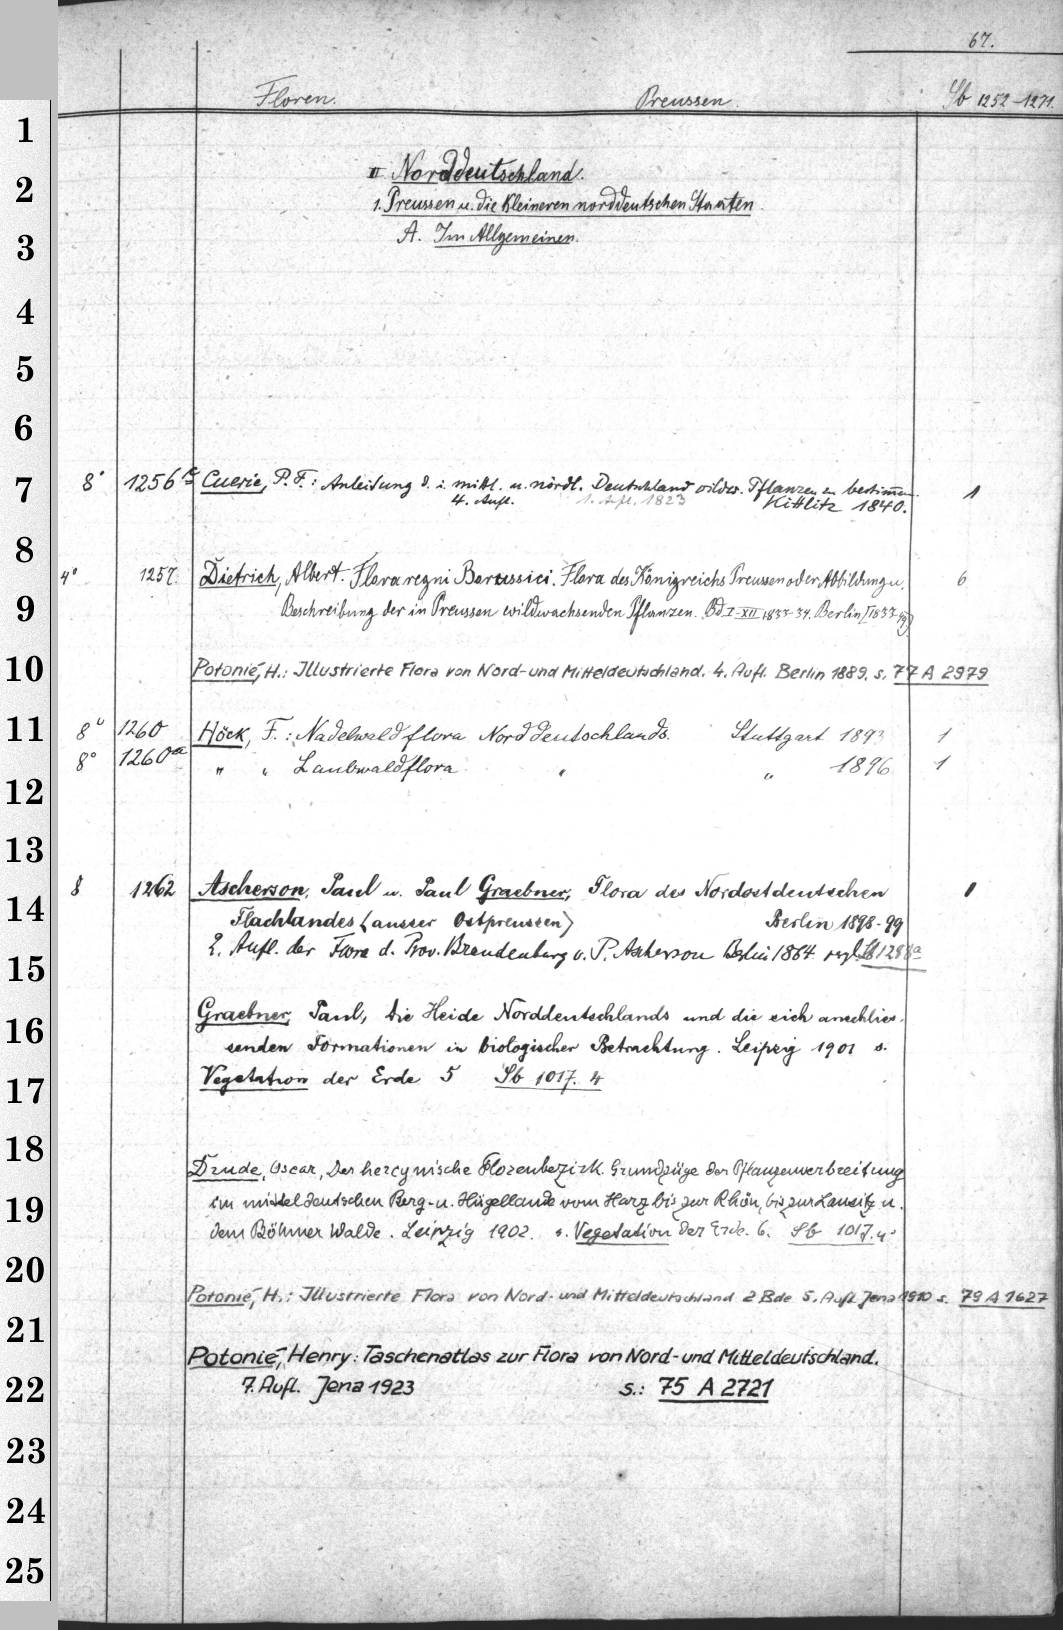 67.
Floren. Preussen. Sb 1252-1271.
1
2
3
4
5
6
7
8
9
10
11
12
13
14
15
16
17
18
19
20
21
22
23
24
25
II Norddeutschland.
1. Preussen u. die Kleineren norddeutschen Staaten.
A. Im Allgemeinen.
8° 1256 Curie, P. F.: Anleitung d. i. mittl. u. nördl. Deutschland wildw. Pflanzen zu bestimmen. 1
4. Aufl. 1. Aufl. 1823 Kittlitz 1840.
4° 1257. Dietrich, Albert. Flora regni Borussici. Flora des Königreichs Preussen oder Abbildung u. 6
Beschreibung der in Preussen wildwachsenden Pflanzen. Bd I-XII 1833-34. Berlin [1833-
Potonié, H.: Illustrierte Flora von Nord- und Mitteldeutschland. 4. Aufl. Berlin 1889. s. 77 A 2979
8° 1260 Höck, F.: Nadelwaldflora Norddeutschlands. Stuttgart 1893 1
8° 1260a " " Laubwaldflora " " 1896 1
8 1262 Ascherson, Paul u. Paul Graebner, Flora des Nordostdeutschen 1
Flachlandes (ausser Ostpreussen) Berlin 1898-99
2. Aufl. der Flora d. Prov. Brandenburg v. P. Ascherson Berlin 1864 vgl. Sb 1298a
Graebner, Paul, Die Heide Norddeutschlands und die sich anschlies-
senden Formationen in biologischer Betrachtung. Leipzig 1901 s.
Vegetation der Erde 5 Sb 1017. 4
Drude, Oscar, Der hercynische Florenbezirk. Grundzüge der Pflanzenverbreitung
im mitteldeutschen Berg- u. Hügellande vom Harz bis zur Rhön, bis zur Lausitz u.
dem Böhmer Walde. Leipzig 1902. s. Vegetation der Erde. 6. Sb 1017. 4°
Potonié, H.: Illustrierte Flora von Nord- und Mitteldeutschland 2 Bde 5. Aufl. Jena 1910 s. 79 A 1627
Potonié, Henry: Taschenatlas zur Flora von Nord- und Mitteldeutschland.
7. Aufl. Jena 1923 s.: 75 A 2721